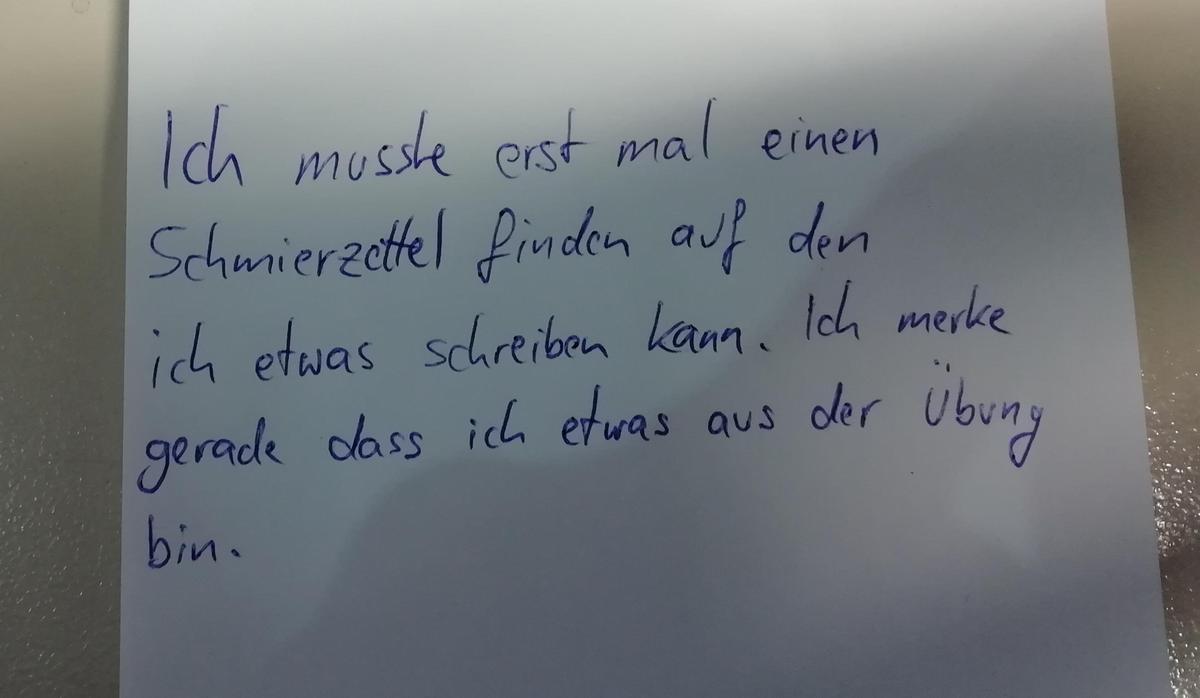 Ich musste erst mal einen
Schmierzettel finden auf den
ich etwas schreiben kann. Ich merke
gerade dass ich etwas aus der Übung
bin.